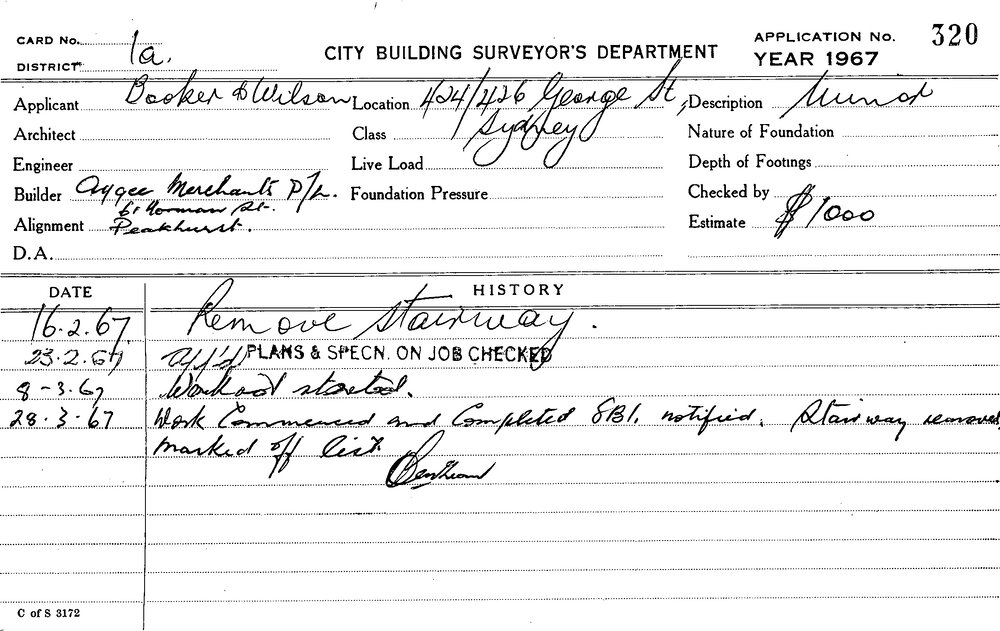 CARD No. 1a.
DISTRICT
CITY BUILDING SURVEYOR'S DEPARTMENT
APPLICATION No. 320
YEAR 1967
Applicant Booker & Wilson Location 424/426 George St, Description Minor
Architect Class Sydney Nature of Foundation
Engineer Live Load Depth of Footings
Builder Aygee Merchants P/L. Foundation Pressure Checked by
61 Norman St.
Alignment Peakhurst. Estimate $1000
D.A.
DATE HISTORY
16.2.67 Remove stairway.
23.2.67 App'd PLANS & SPECN. ON JOB CHECKED
8-3.67 Work not started.
28.3.67 Work Commenced and Completed SBI. notified. Stairway removed,
marked off list
C of S 3172